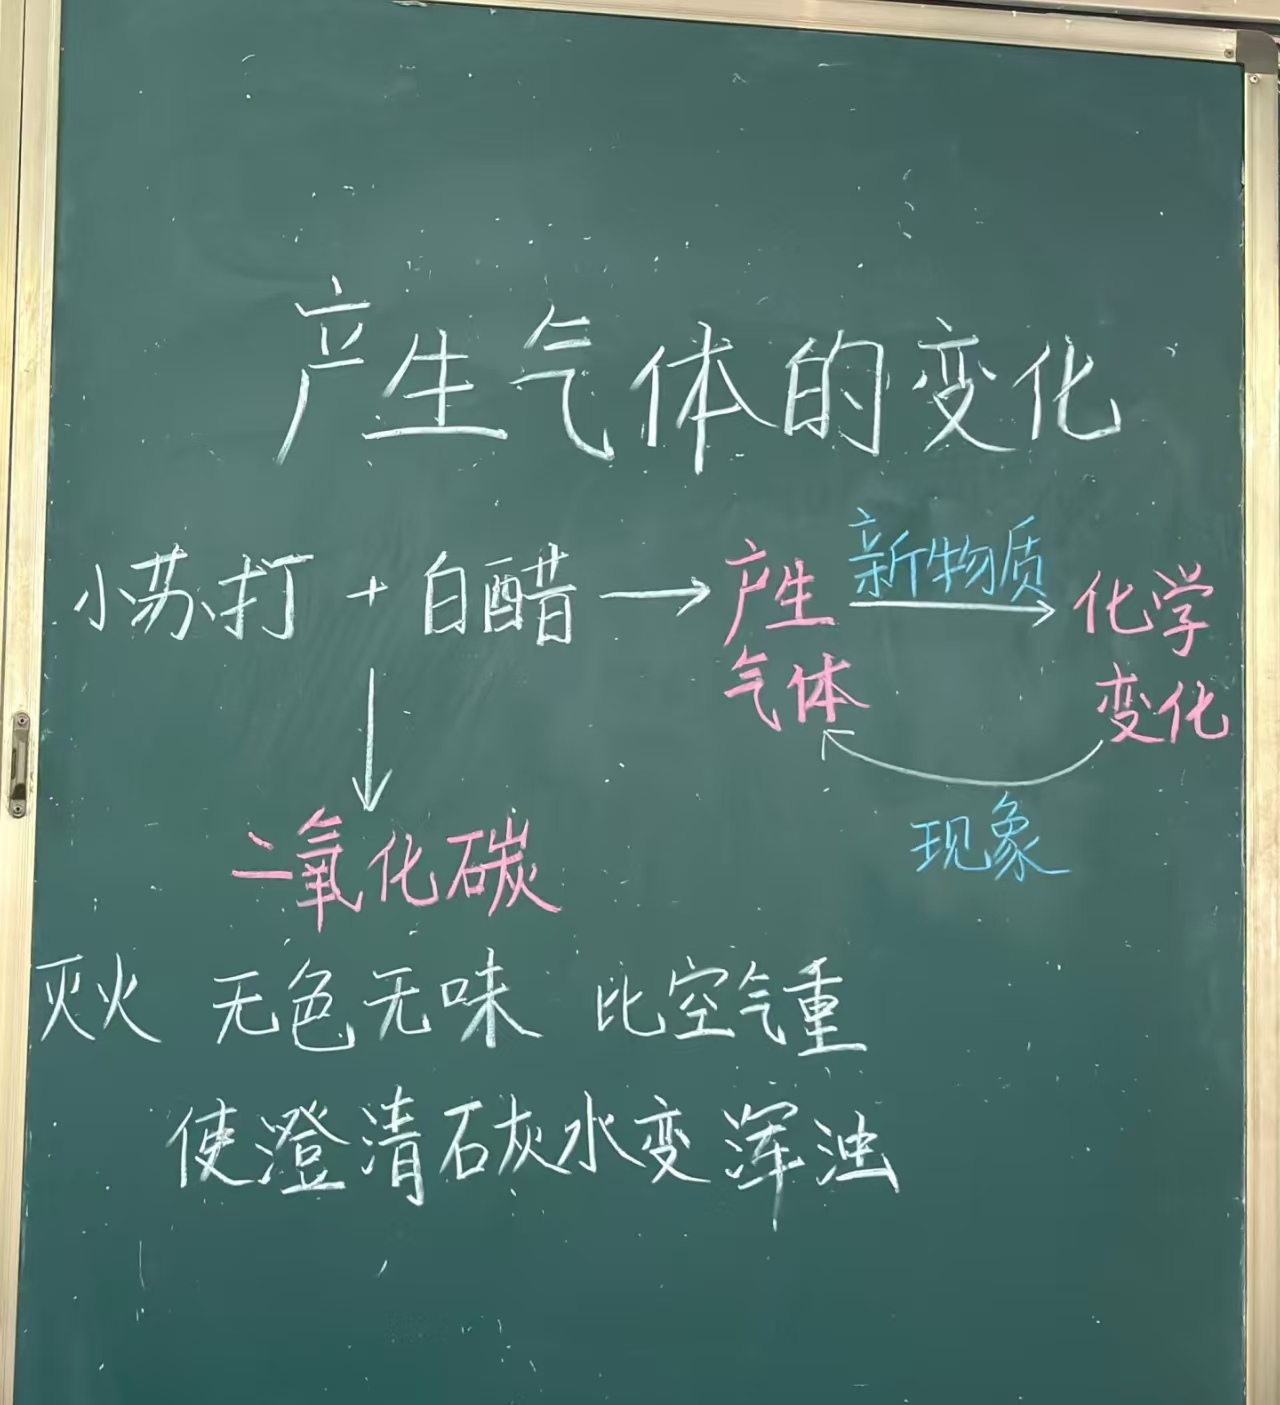 产生气体的变化
小苏打 + 白醋 → 产生气体 新物质 → 化学变化
现象
↓
二氧化碳
灭火 无色无味 比空气重
使澄清石灰水变浑浊